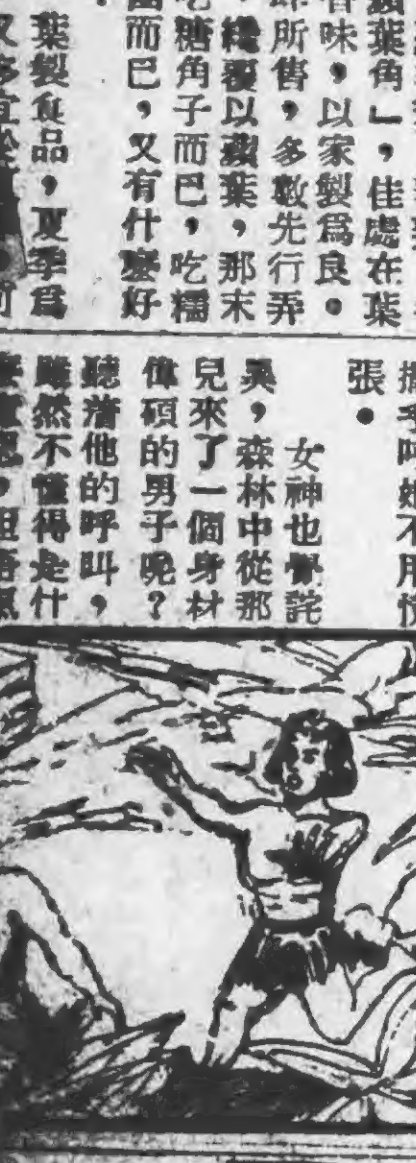 葉角」，佳處在葉
味，以家製爲良。
所售，多數先行弄
覆以蘋葉，那末
吃糖角子而巳，吃糯
而巳，又有什麽好
葉製食品，夏季爲
又
不用
張。
女神也覺詫
異，森林中從那
兒來了一個身材
偉碩的男子呢？
聽着他的呼叫，
雖然不懂得是什